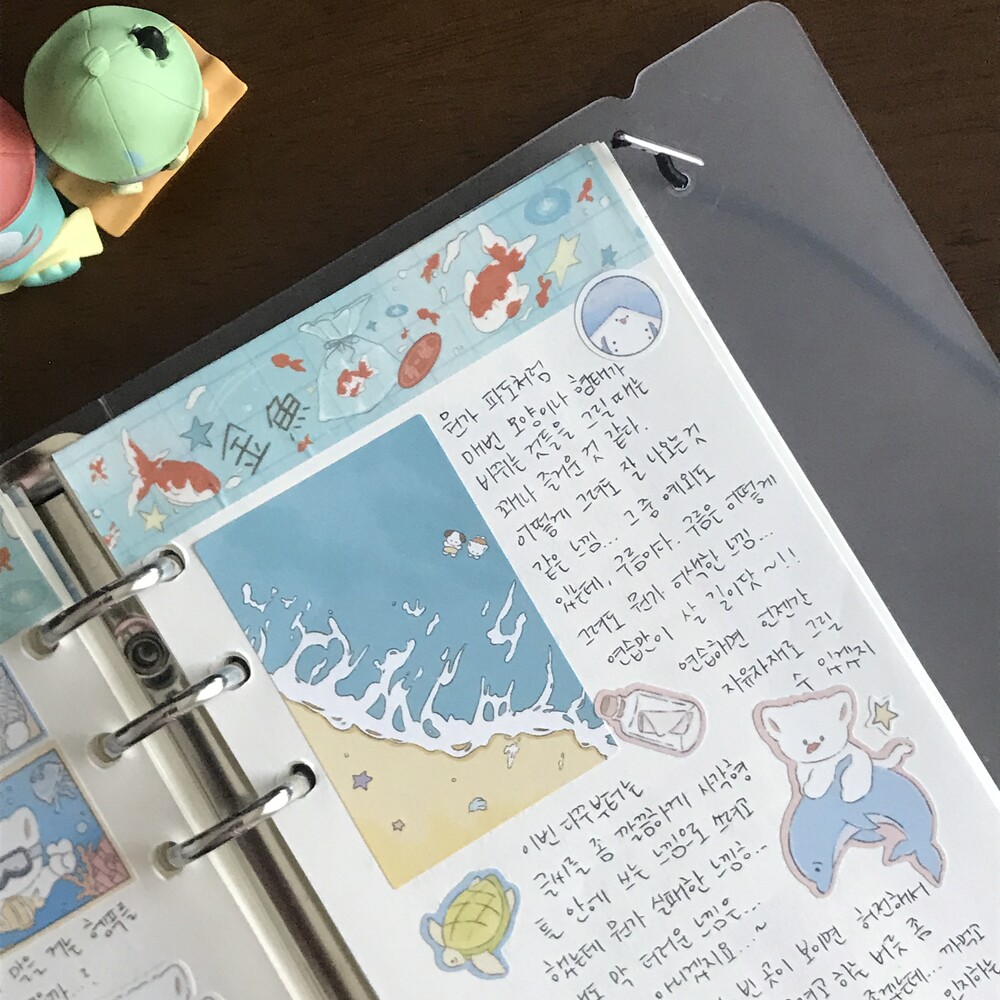 金魚
뭔가 파도처럼
매번 모양이나 형태가
바뀌는 것들을 그릴 때는
꽤나 즐거운 것 같다.
어떻게 그려도 잘 나오는 것
같은 느낌... 그중 예외도
있는데, 구름이다. 구름은 어떻게
그려도 뭔가 어색한 느낌...
연습만이 살 길이닷~!!
연습하면 언젠간
자유자재로 그릴
수 있겠지
이번 다꾸부터는
글씨를 좀 깔끔하게 사각형
틀 안에 쓰는 느낌으로 쓰려고
했는데 뭔가 실패한 느낌...
래도 막 더러운 느낌은...
아니겠지요...~
빈 곳이 보이면 허전해서
하는 버릇 좀